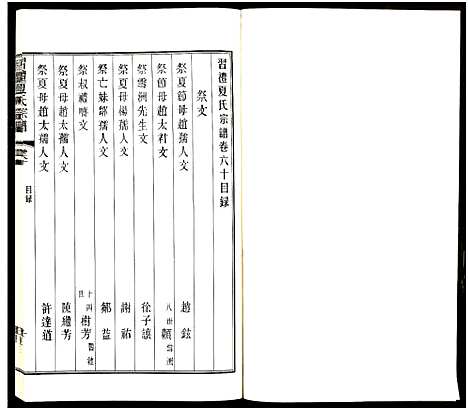 習禮夏氏宗譜卷六十目録
祭文
祭夏節母趙孺人文 趙鉉
祭夏節母趙太君文 八世顥
祭雪洲先生文 徐子諒
祭夏母楊孺人文 謝祐
祭亡妹鄒孺人文 鄒益
祭叔禮喀文 十四世樹芳
祭夏母趙太孺人文 陳繼芳
祭夏母趙太孺人文 許達道
目録